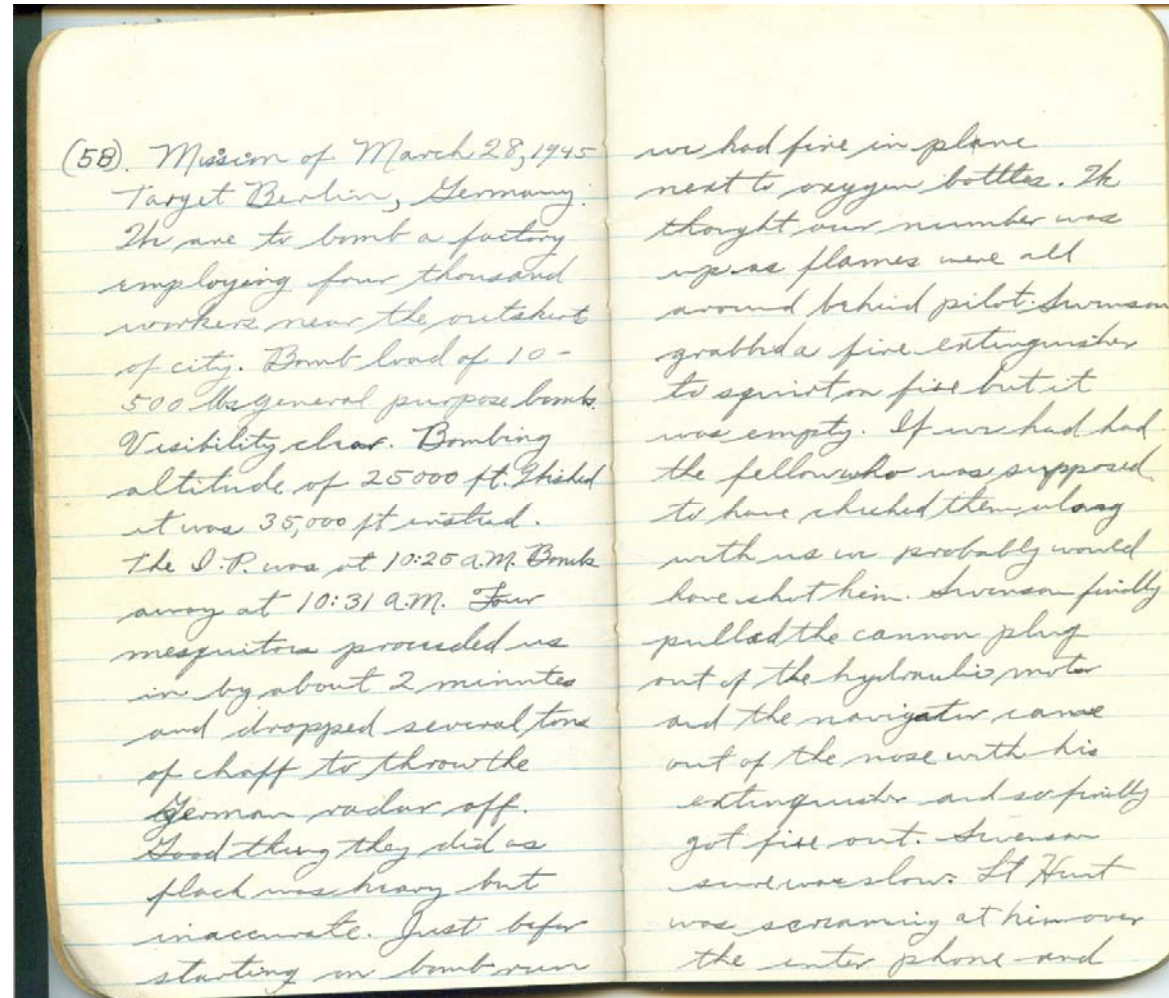 (58). Mission of March 28, 1945
Target Berlin, Germany.
We are to bomb a factory
employing four thousand
workers near the outskirt
of city. Bomb load of 10 -
500 lbs general purpose bombs.
Visibility clear. Bombing
altitude of 25000 ft. I wished
it was 35,000 ft instead.
The I.P. was at 10:25 A.M. Bombs
away at 10:31 A.M. Four
mesquitors preceeded us
in by about 2 minutes
and dropped several tons
of chaff to throw the
German radar off.
Good thing they did as
flack was heavy but
inaccurate. Just befor
starting on bomb run
we had fire in plane
next to oxygen bottles. We
thought our number was
up as flames were all
around behind pilot. Swenson
grabbed a fire extinguisher
to squirt on fire but it
was empty. If we had had
the fellow who was supposed
to have checked them along
with us we probably would
have shot him. Swenson finally
pulled the cannon plug
out of the hydraulic motor
and the navigator came
out of the nose with his
extinguisher and so finally
got fire out. Swenson
sure was slow. Lt Hunt
was screaming at him over
the inter phone and